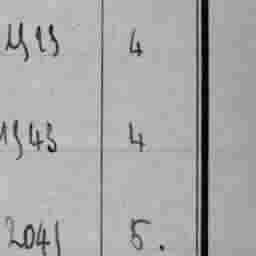 4
1943 4
2041 5.